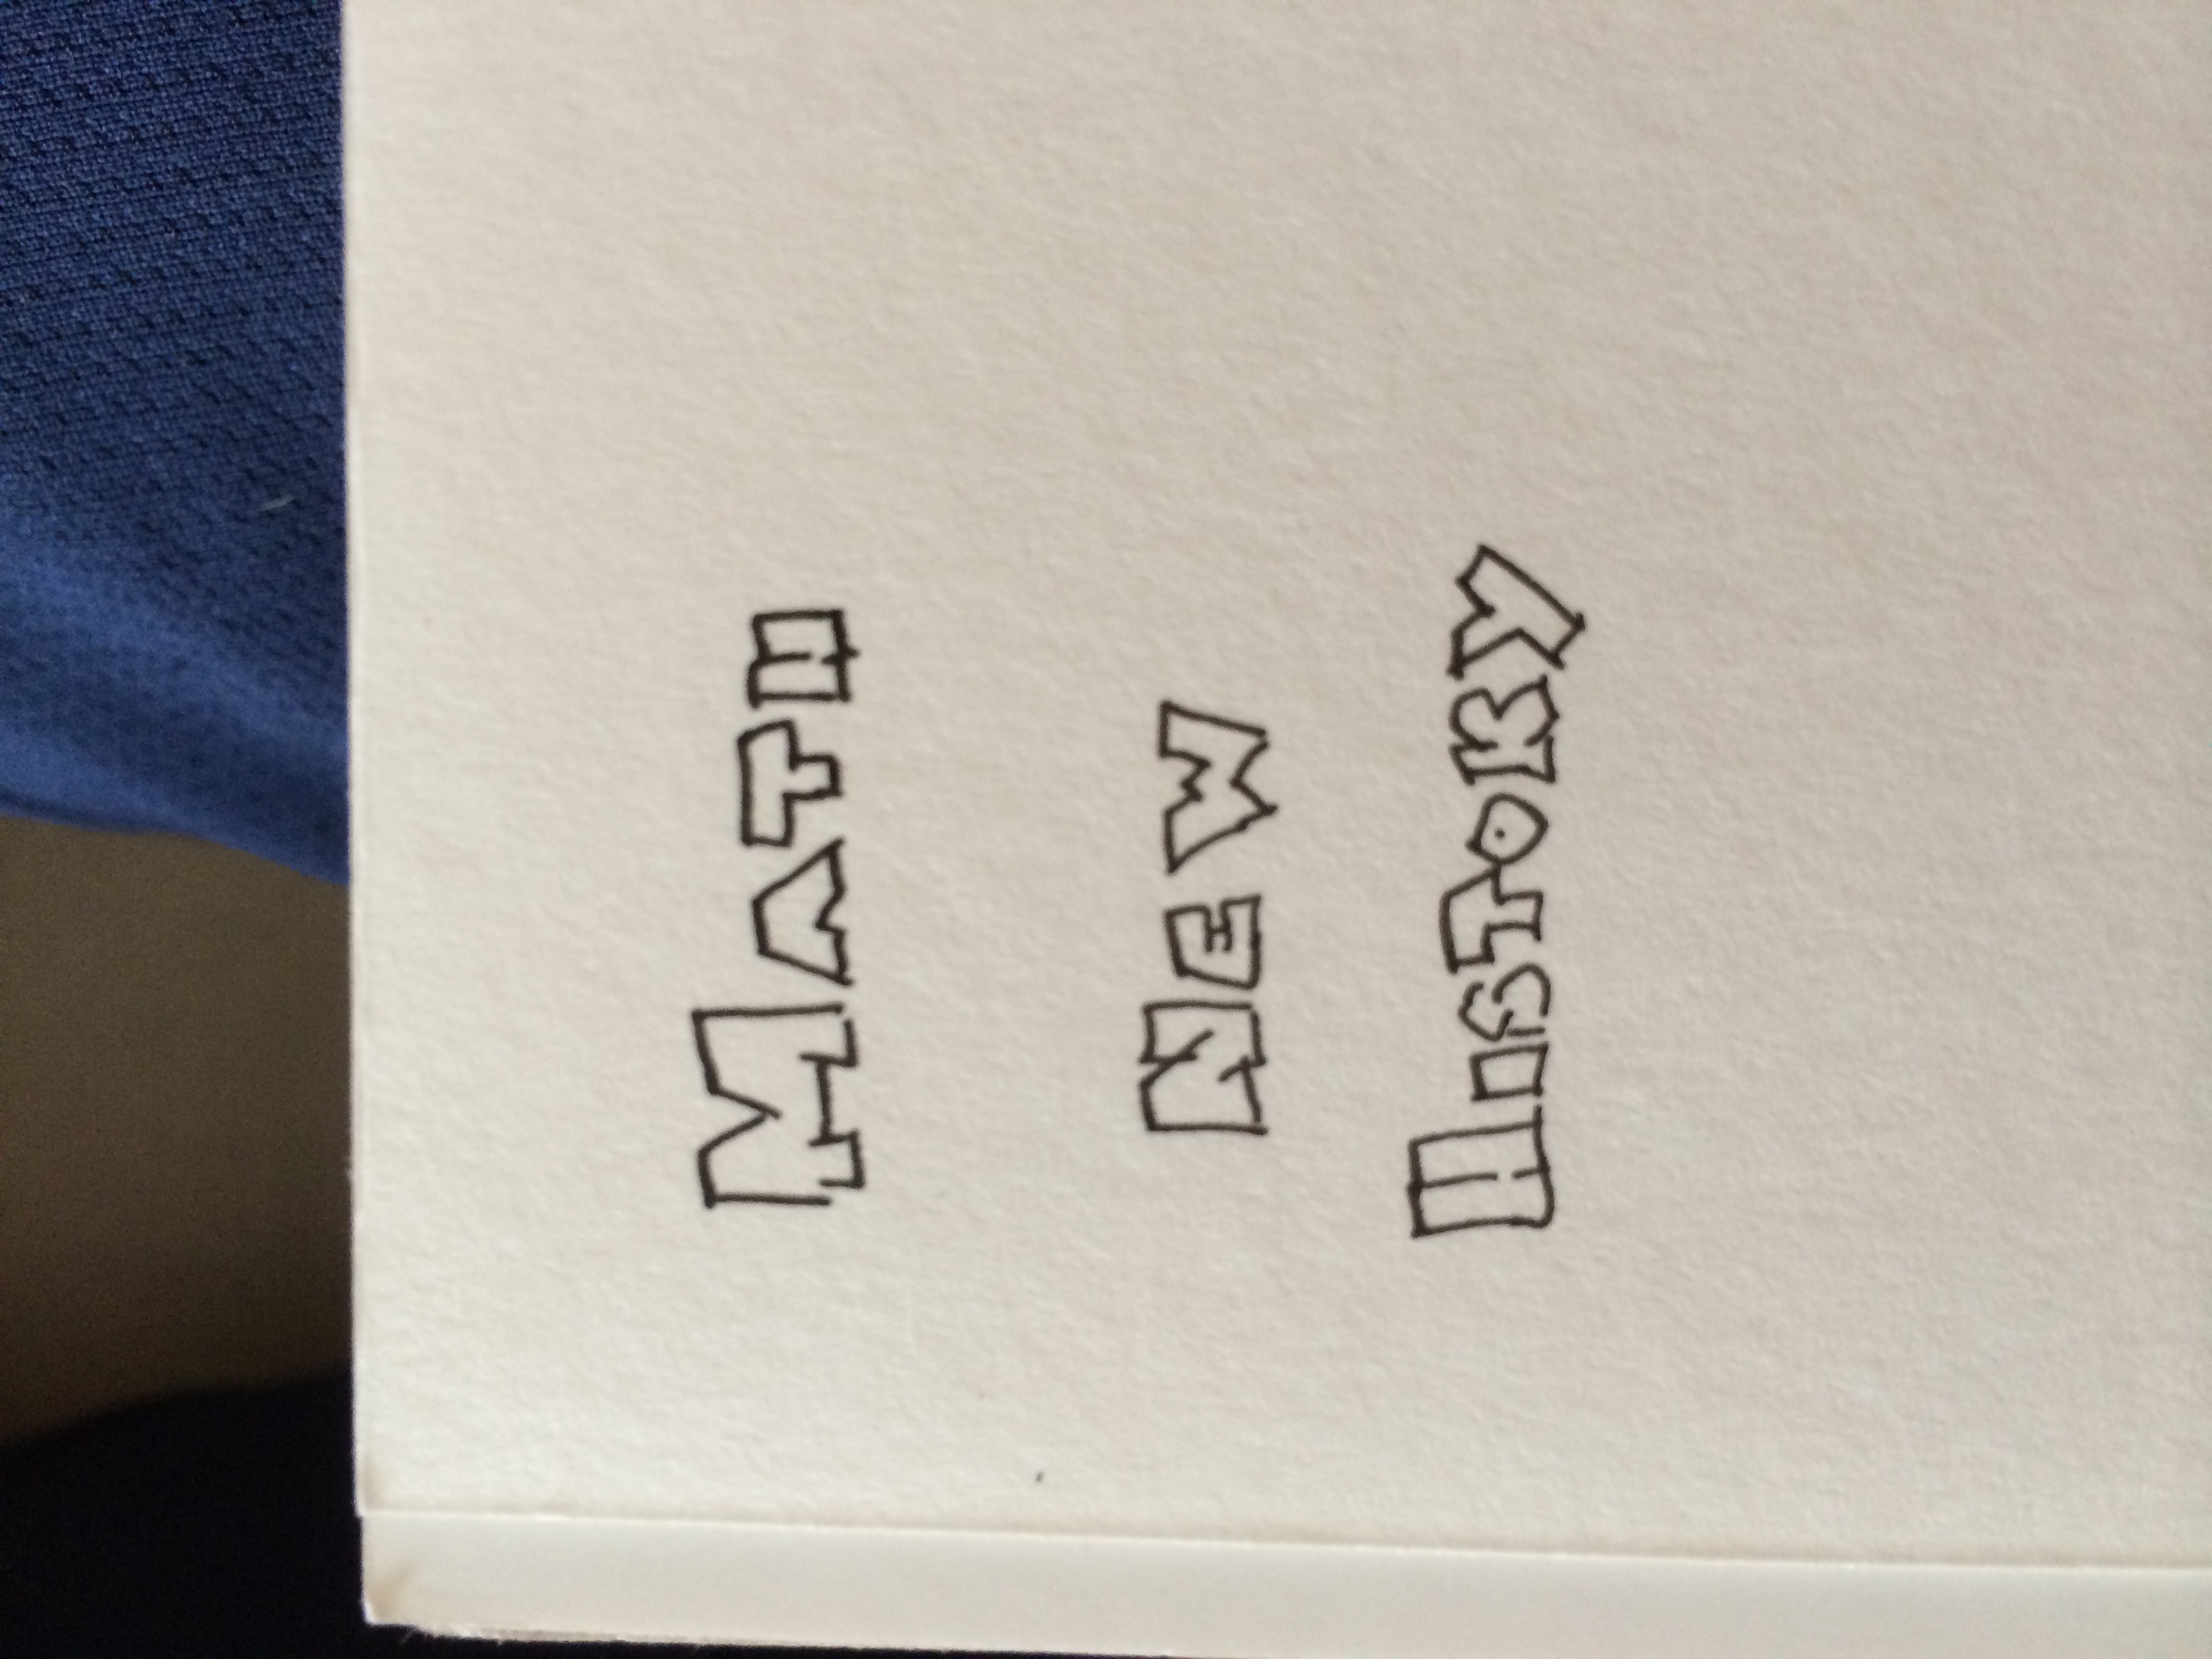 Math
New
History